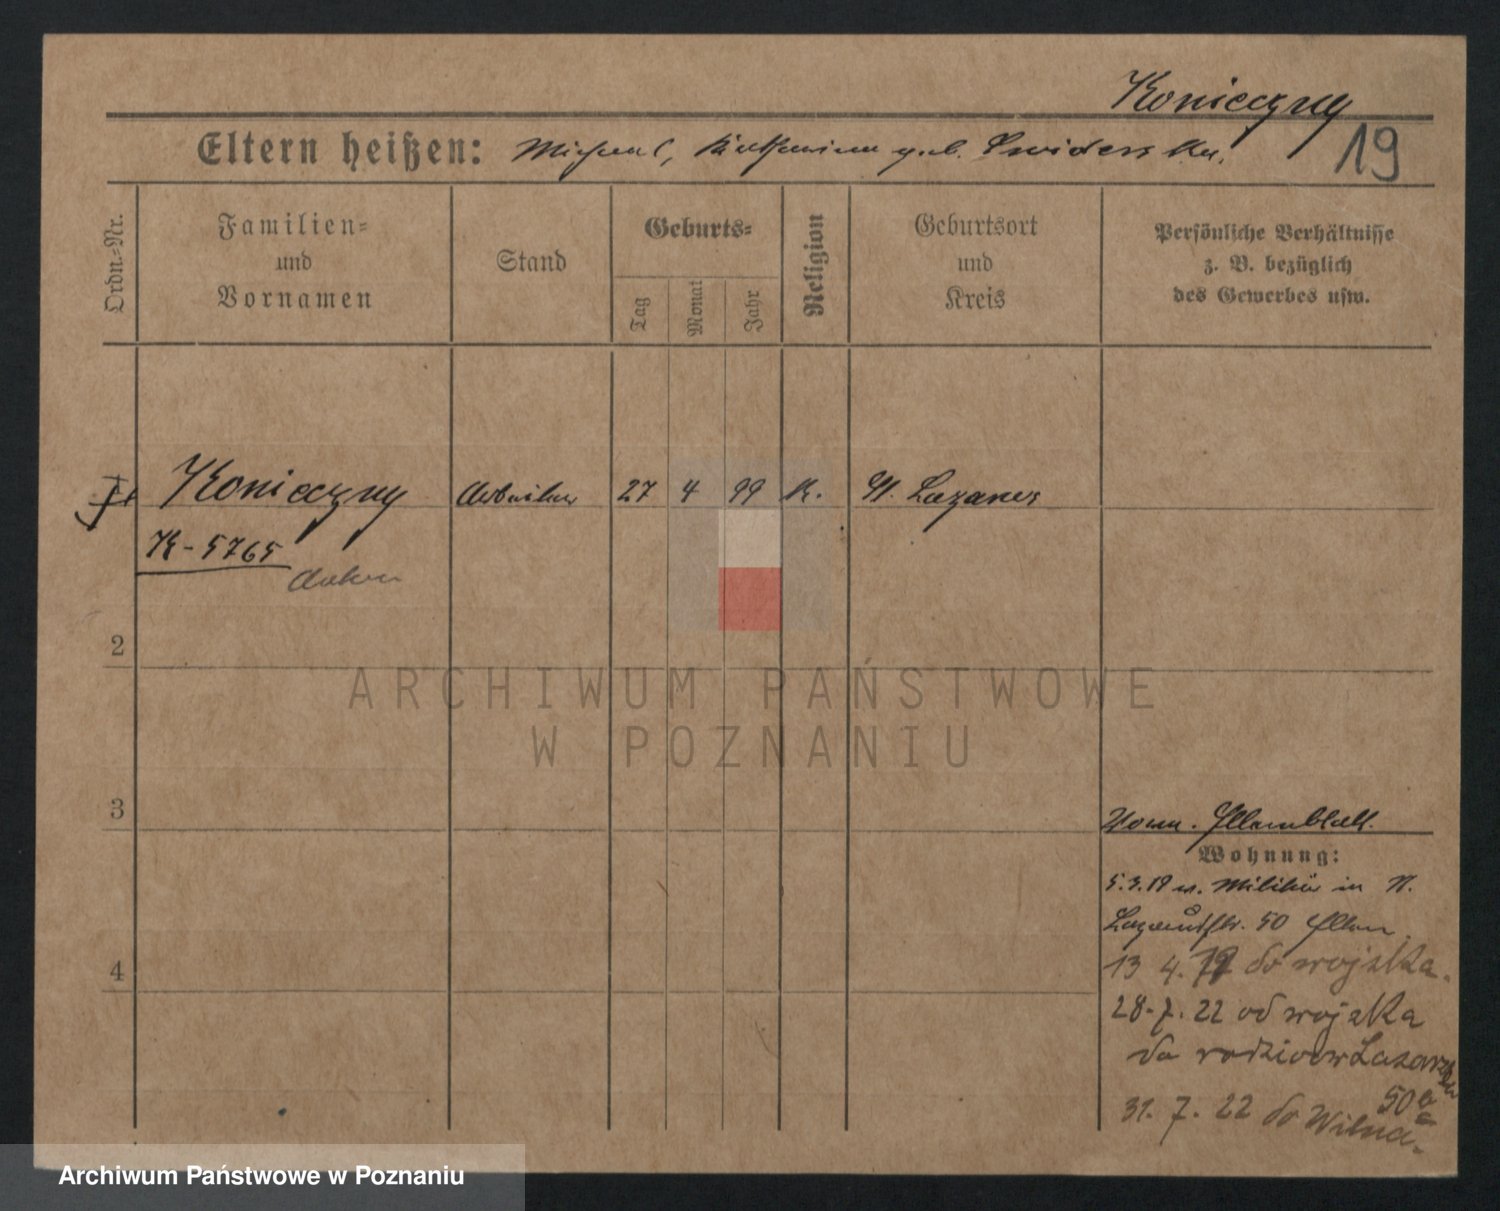 Konieczny
19
Eltern heißen: Michael, Katharina geb. Swiderska.
Ordn.-Nr.
Familien-
und
Vornamen
Stand
Geburts-
Tag
Monat
Jahr
Religion
Geburtsort
und
Kreis
Persönliche Verhältnisse
z. B. bezüglich
des Gewerbes usw.
Konieczny Arbeiter 27 4 99 K. St. Lazarus
K-5765
2
3
4
Wohnung:
5.3.19 v. Militär in
50 Eltern
13 4. 19 do wojska.
28.7.22 od wojska
do rodziców Lazarska
50a
31.7.22 do Wilna.
ARCHIWUM PAŃSTWOWE
W POZNANIU
Archiwum Państwowe w Poznaniu